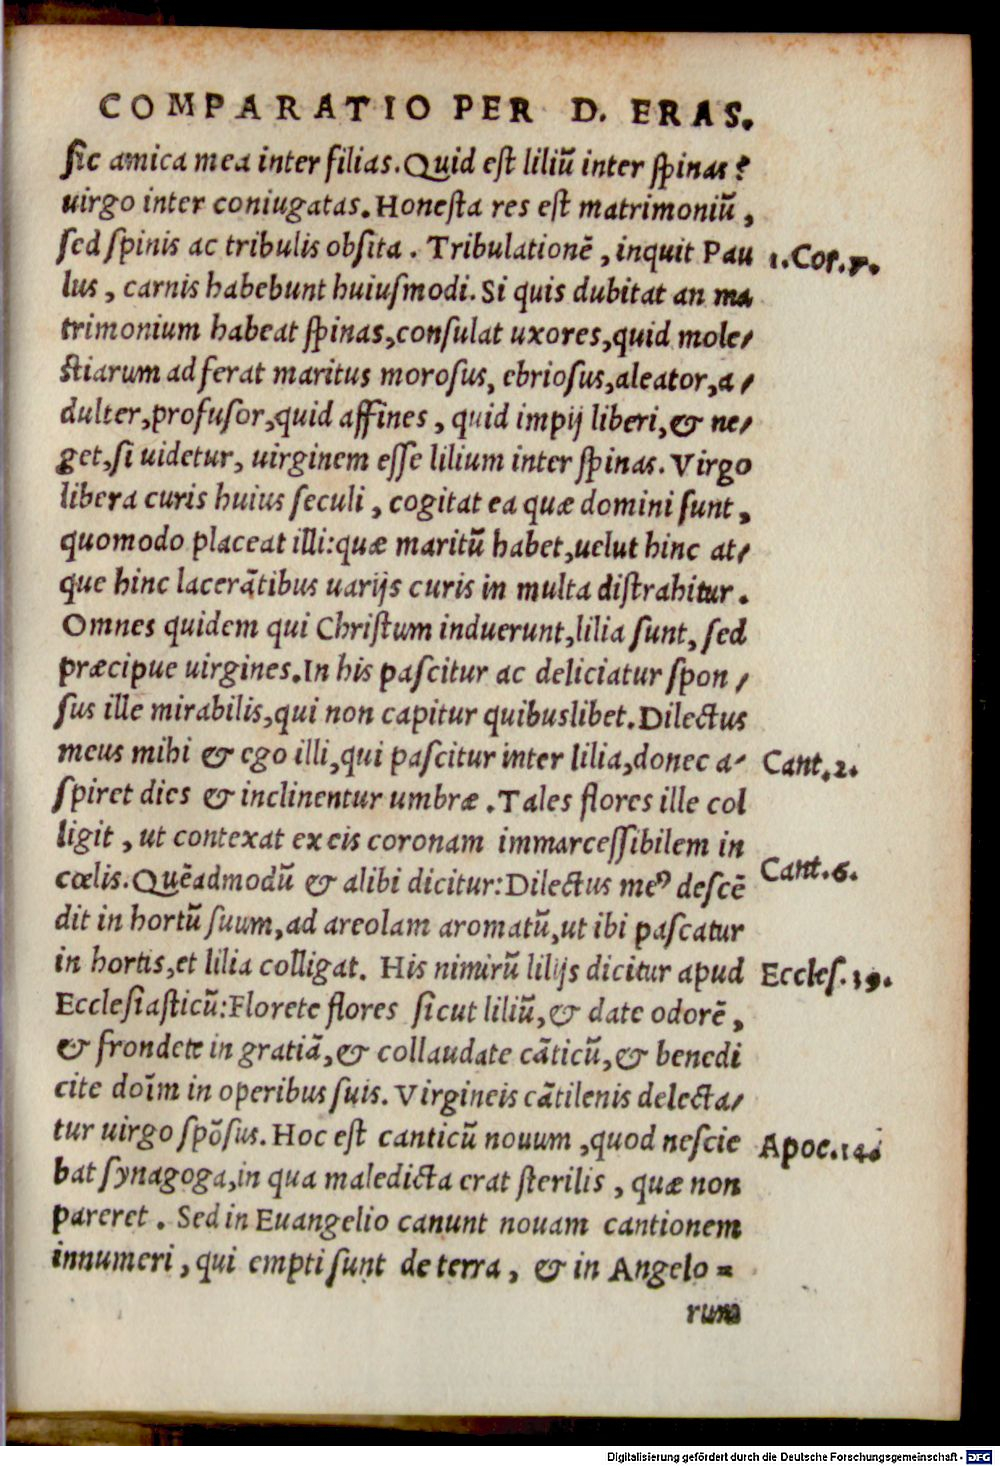 COMPARATIO PER D. ERAS.
sic amica mea inter filias. Quid est liliū inter spinas?
uirgo inter coniugatas. Honesta res est matrimoniū,
sed spinis ac tribulis obsita. Tribulationē, inquit Pau
1. Cor. 7.
lus, carnis habebunt huiusmodi. Si quis dubitat an ma
trimonium habeat spinas, consulat uxores, quid mole-
stiarum adferat maritus morosus, ebriosus, aleator, a-
dulter, profusor, quid affines, quid impij liberi, & ne-
get, si uidetur, uirginem esse lilium inter spinas. Virgo
libera curis huius seculi, cogitat ea quæ domini sunt,
quomodo placeat illi: quæ maritū habet, uelut hinc at-
que hinc lacerātibus uarijs curis in multa distrahitur.
Omnes quidem qui Christum induerunt, lilia sunt, sed
præcipue uirgines. In his pascitur ac deliciatur spon-
sus ille mirabilis, qui non capitur quibuslibet. Dilectus
meus mihi & ego illi, qui pascitur inter lilia, donec a-
Cant. 2.
spiret dies & inclinentur umbræ. Tales flores ille col
ligit, ut contexat ex eis coronam immarcessibilem in
cœlis. Quēadmodū & alibi dicitur: Dilectus meꝰ descē
Cant. 6.
dit in hortū suum, ad areolam aromatū, ut ibi pascatur
in hortis, et lilia colligat. His nimirū lilijs dicitur apud
Eccles. 39.
Ecclesiasticū: Florete flores sicut liliū, & date odorē,
& frondete in gratiā, & collaudate cāticū, & benedi
cite doīm in operibus suis. Virgineis cātilenis delecta-
tur uirgo spōsus. Hoc est canticū nouum, quod nescie
Apoc. 14.
bat synagoga, in qua maledicta erat sterilis, quæ non
pareret. Sed in Euangelio canunt nouam cantionem
innumeri, qui empti sunt de terra, & in Angelo=
rum
Digitalisierung gefördert durch die Deutsche Forschungsgemeinschaft - DFG